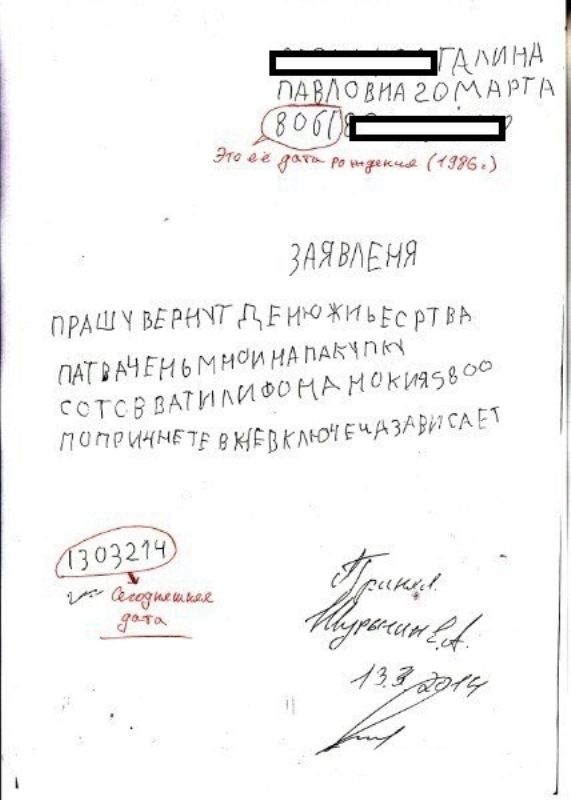 ГАЛИНА
ПАВЛОВНА 20 МАРТА
8061
Это её дата рождения (1986г.)
ЗАЯВЛЕНЯ
ПРАШУ ВЕРНУТ ДЕНЮЖИЬЕСРТВА
ПАТВАЧЕНЬМНОИ НА ПАКУПКУ
СОТСВВАТИЛИФОНА НОКИЯ5800
ПО ПРИЧНЕТЕВЖЕВКЛЮЧЕЧАЗАВИСАЕТ
1303214
Сегодняшняя
дата
Принял
Е.А.
13.3.2014